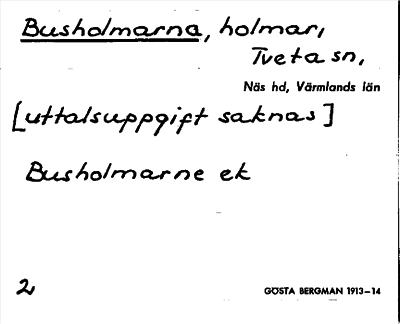 Busholmarna, holmar,
Tveta sn,
Näs hd, Värmlands län
[uttalsuppgift saknas]
Busholmarne ek
2
GÖSTA BERGMAN 1913–14